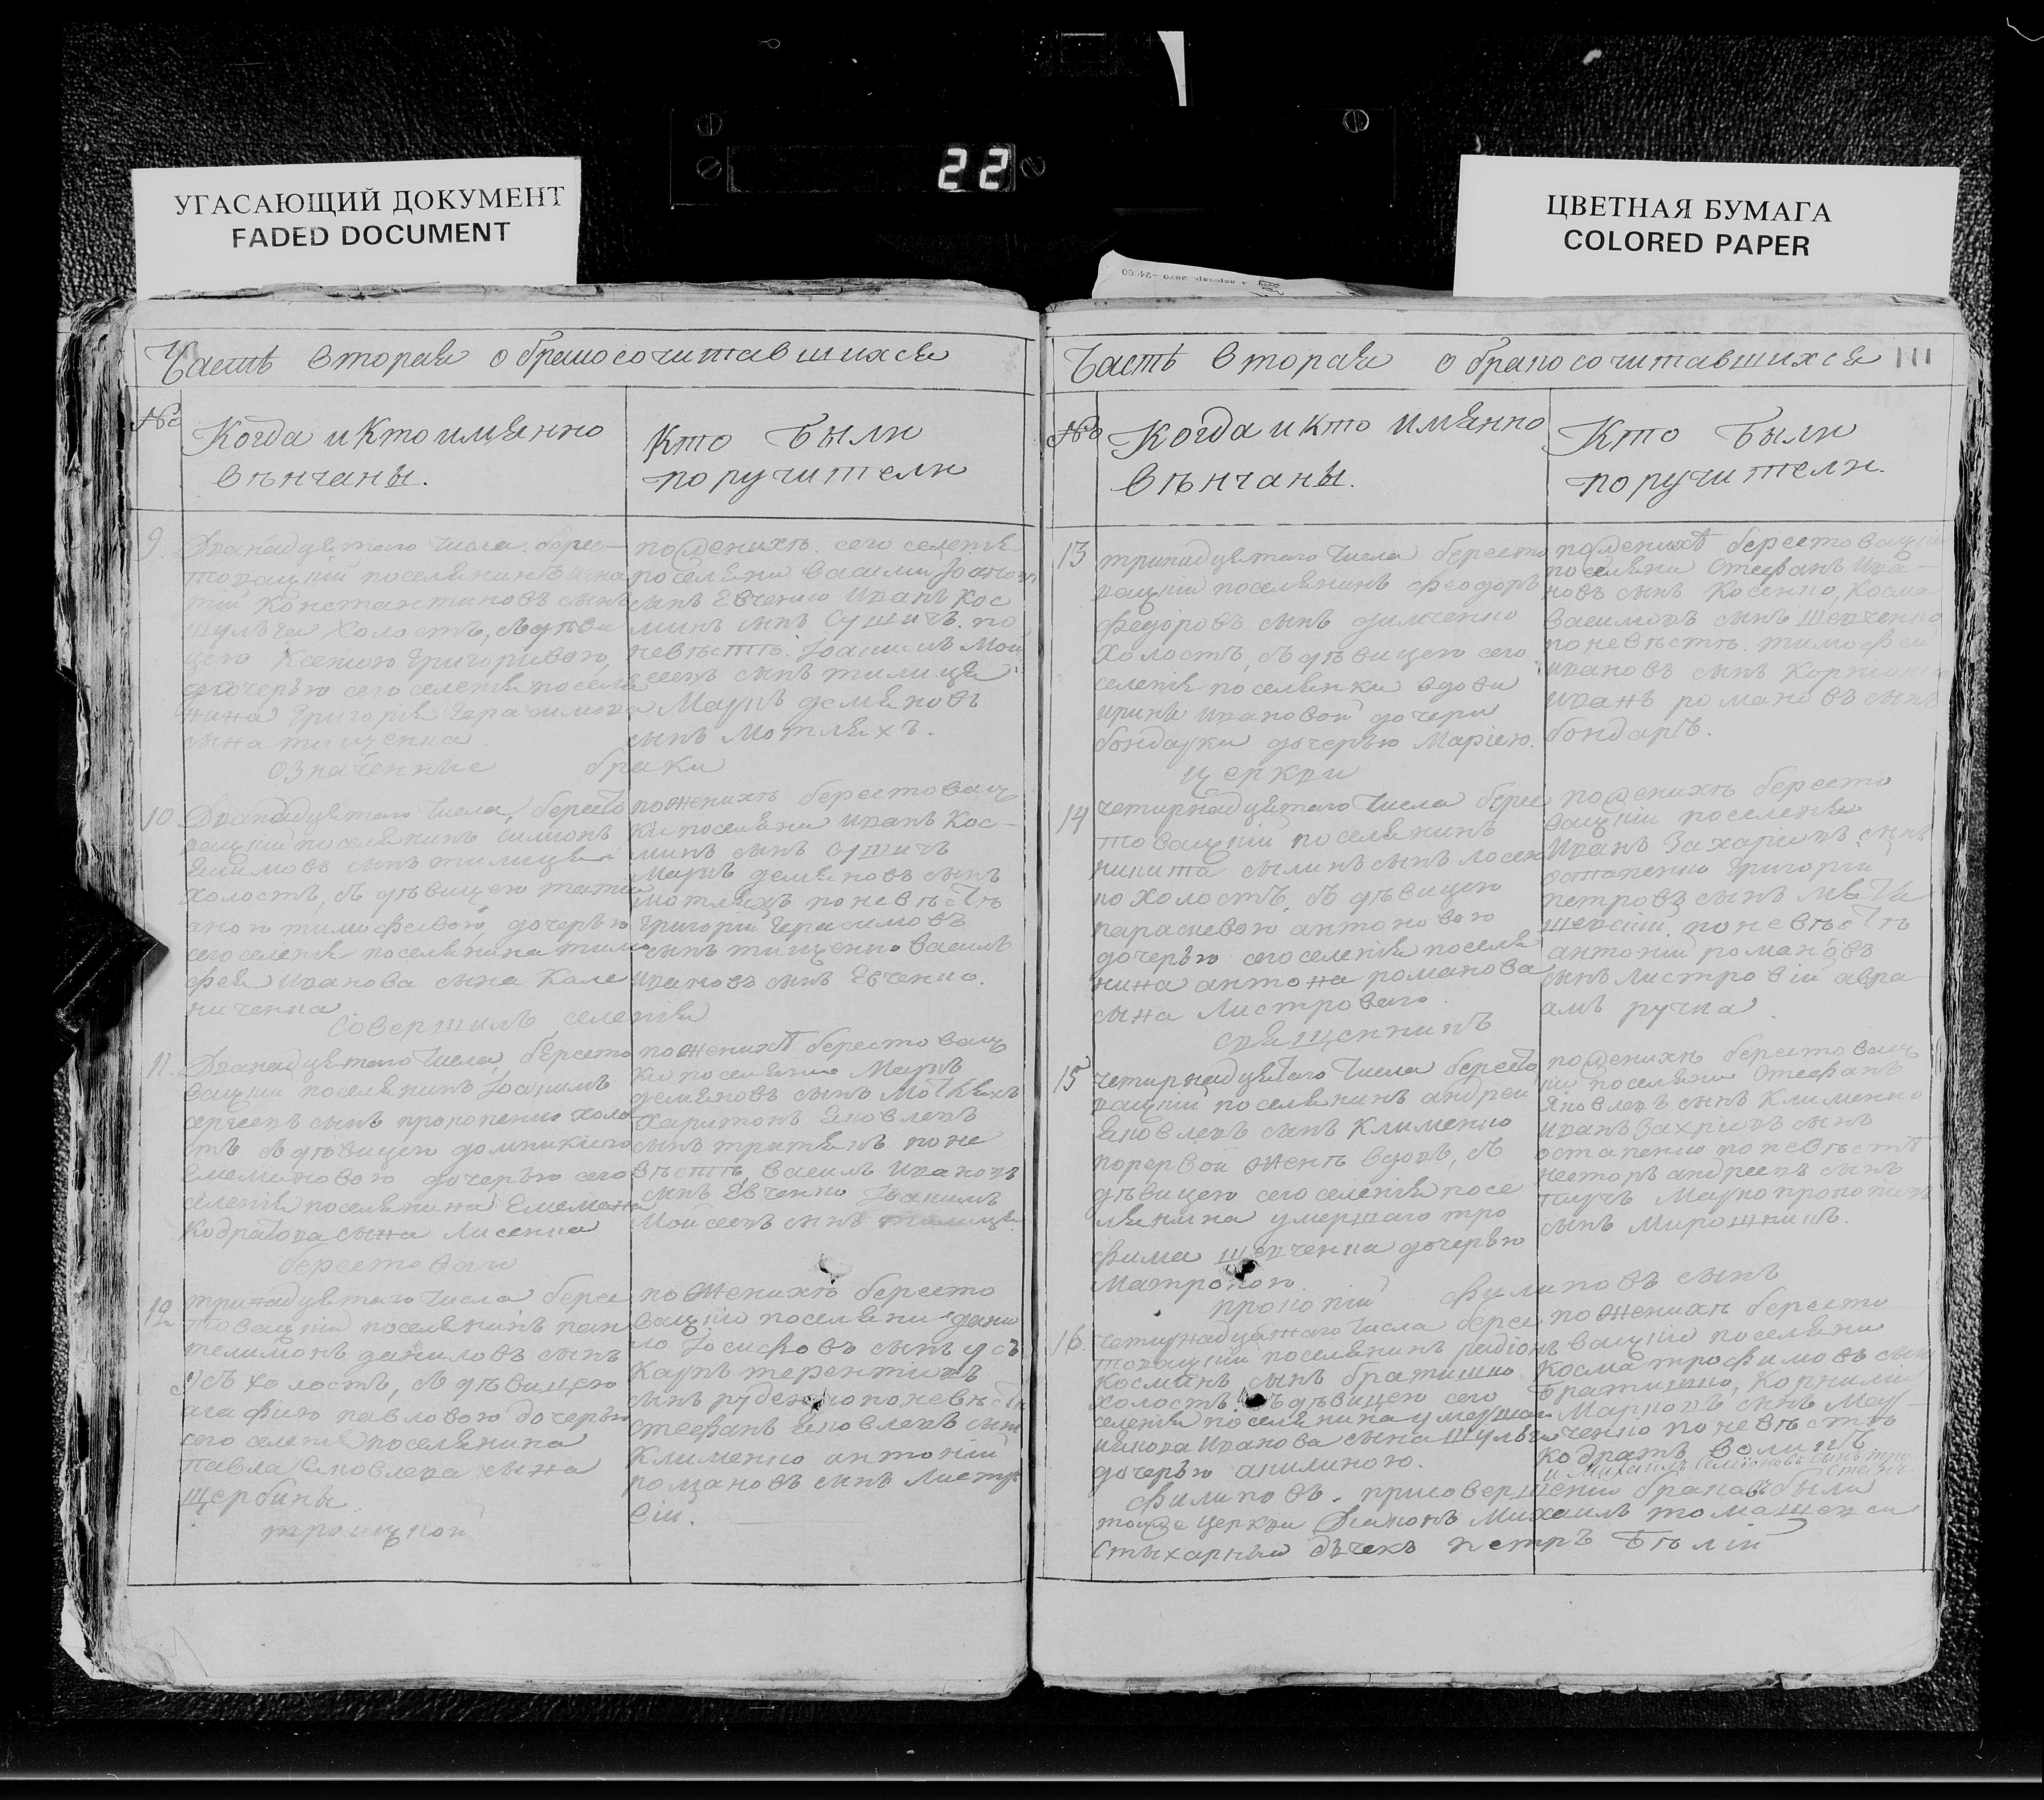 22
УГАСАЮЩИЙ ДОКУМЕНТ
FADED DOCUMENT
ЦВЕТНАЯ БУМАГА
COLORED PAPER
Часть вторая о бракосочитавшихся
№
Когда и кто имянно
вѣнчаны.
Кто были
поручители
9.
Дванадцятаго числа. берес-
товацкій поселянинъ игна
тій Константиновъ сынъ
шульга холостъ, съ дѣви
цею Ксениею Григориевою,
дочерью сего селенія поселя
нина Григорія Герасимова
сына тищенка.
по женихѣ. сего селенія
поселяни Василий
сынъ Евченко Иванъ Кос
минъ сынъ сушичъ. по
невѣстѣ. Іоакимъ Мои
сеевъ сынъ тилиця
Маркъ демяновъ
сынъ Мотляхъ.
означенные браки
10
Дванадцятаго числа, бересто
вацкій поселянинъ симионъ
Якимовъ сынъ тилиця
холостъ, съ дѣвицею татия
ною тимофеевою, дочерью
сего селенія поселянина тимо
фея Иванова сына Кале
ниченка
по женихѣ берестовац
кі поселяни Иванъ Кос-
минъ сынъ сушичъ
Маркъ демяновъ сынъ
мотляхъ по невѣстѣ
Григорій Герасимовъ
сынъ тищенко Василь
Ивановъ сынъ Евченко.
Совершилъ селенія
11.
Дванадцятаго числа, бересто
вацкій поселянинъ Іоакимъ
сергеевъ сынъ прокопенко холо
стъ съ дѣвицею домникиею
Емелиановою дочерью сего
селенія поселянина Емелиана
Кодратова сына Лисенка
по женихѣ берестовац
кіе поселяне Маркъ
демяновъ сынъ Мотляхъ
Харитонъ Яковлевъ
сынъ по не
вѣстѣ, Василь Ивановъ
сынъ Евченко Іоакимъ
Мойсеевъ сынъ тилиця
берестоваки
12
тринадцятаго числа берес
товацкій поселянинъ пан
телимонъ даниловъ сынъ
Усъ холостъ, съ дѣвицею
агафиею павловою дочерью
сего селенія поселянина
павла Яковлева сына
щербины
по женихѣ бересто
вацкіе поселяни дани
ло Іосифовъ сынъ усъ
Карпъ терентиевъ
сынъ руденко по невѣстѣ
Стефанъ Яковлевъ сынъ
Клименко антоній
романовъ сынъ листр
вій.
троицкой
Часть вторая о бракосочитавшихся
111
№
Когда и кто имянно
вѣнчаны.
Кто были
поручители.
13
тринадцятаго числа бересто
вацкій поселянинъ феодоръ
федоровъ сынъ димченко
холостъ, съ дѣвицею сего
селенія поселянки вдови
ирини Ивановой дочери
бондарки дочерью Мариею.
по женихѣ берестовацкіи
поселяни Стефанъ Ива-
новъ сынъ Косенко, Косма
Василиовъ сынъ шевченко
по невѣстѣ. тимофей
ивановъ сынъ
иванъ романовъ сынъ
бондарь.
церкви
14
четирнадцятаго числа берес
товацкій поселянинъ
никита сынъ лосен
ко холостъ, съ дѣвицею
параскевою антоновою
дочерью сего селенія поселя
нина антона романова
сына листроваго.
по женихѣ бересто
вацкіи поселяни
Иванъ Захариевъ сынъ
остапенко Григорій
петровъ сынъ
по невѣстѣ
антоній романовъ
сынъ листровій авра
амъ ручка.
священникъ
15
четирнадцятаго числа бересто
вацкій поселянинъ андрей
Яковлевъ сынъ Клименко
по первой женѣ вдовъ, съ
дѣвицею сего селенія посе
лянина умершаго тро
фима шевченка дочерью
Матроною.
по женихѣ берестовац
кіи поселяни Стефанъ
Яковлевъ сынъ Клименко
иванъ Захриевъ сынъ
остапенко по невѣстѣ
несторъ андреевъ сынъ
Марко прокопиевъ
сынъ Мирошникъ.
прокопій филиповъ сынъ
16.
четирнадцятаго числа берес
товацкій поселянинъ родіонъ
Косминъ сынъ братишко
холостъ, съ дѣвицею сего
селенія поселянина умершаго
Иванова сына шульги
дочерью акилиною.
по женихѣ бересто
вацкіе поселяни
Косма трофимовъ сынъ
братишко, Корнилій
Марковъ сынъ Мар-
ченко по невѣстѣ
Кодратъ воликъ
и Михаилъ
филиповъ. при совершении брака были
тоя же церкви Діаконъ Михаилъ томашевски
Стыхарный дячекъ петръ бѣлій